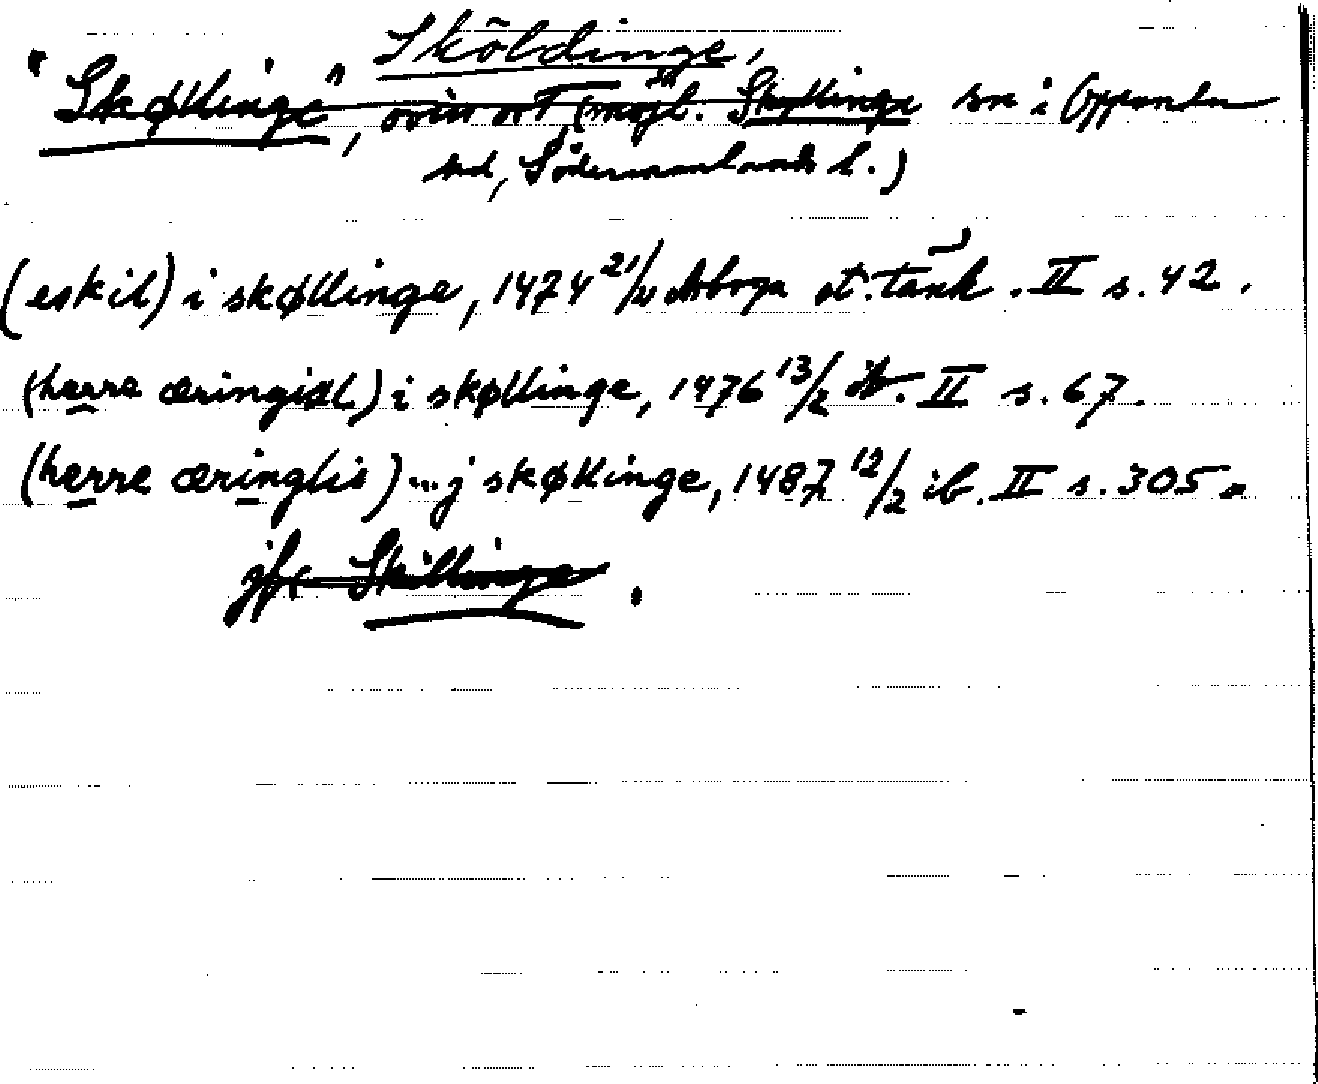 Sköldinge,
"Skøllinge", oviss ort, (möjl. Skyllinge sn i Oppunda
hd, Södermanlands l.)
(eskil) i skøllinge, 1474 21/11 Arboga st. tänk. II s. 42.
(herre æringisl) i skøllinge, 1476 13/2 ib. II s. 67.
(herre æringlis) ... j skøllinge, 1487 12/2 ib. II s. 305.
jfr Skillinge.